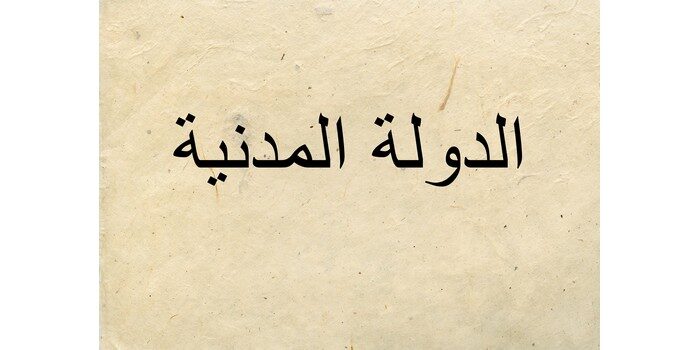 الدولة المدنية